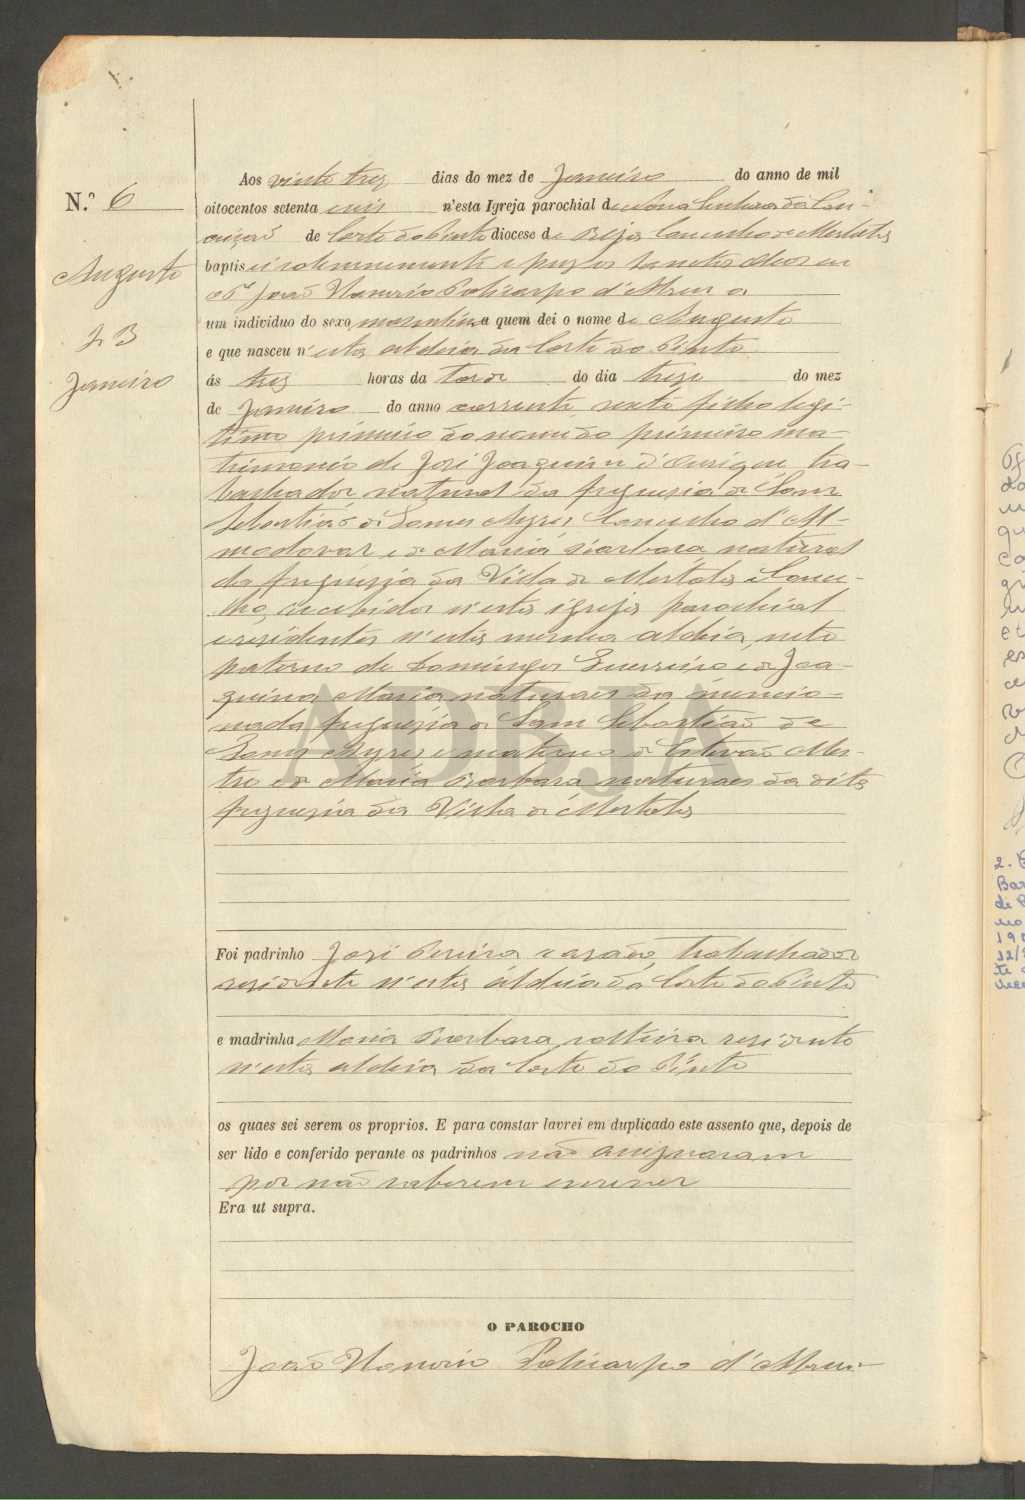 N.º 6
Augusto
23
Janeiro
Aos vinte trez dias do mez de Janeiro do anno de mil
oitocentos setenta seis n'esta Igreja parochial de Nossa Senhora da Con-
ceiçaõ de Corte do Pinto diocese de Beja Concelho de Mertola
baptisei solemnemente e puz os Santos Oleos eu
João Honorio Policarpo d'Abreu a
um individuo do sexo masculino a quem dei o nome de Augusto
e que nasceu n'esta aldeia da Corte do Pinto
ás trez horas da tarde do dia treze do mez
de Janeiro do anno corrente sexto filho legi-
timo primeiro do nome do primeiro ma-
trimonio de José Joaquim d'Ourique tra-
balhador, natural da freguezia de Sam
Sebastião de Gomes Ayres Concelho d'Al-
modovar e de Maria Barbara natural
da freguezia da Villa de Mertola e Conce-
lho, recebidos n'esta igreja parochial
e residentes n'esta mesma aldeia, neto
paterno de Domingos Guerreiro e de Joa-
quina Maria naturaes da mencio-
nada freguezia de Sam Sebastião de
Gomes Ayres e materno de Estevaõ Mes-
tre e de Maria Barbara naturaes da dita
freguezia da Villa de Mertola
Foi padrinho José Pereira casado, trabalhador
residente n'esta aldeia da Corte do Pinto
e madrinha Maria Barbara, solteira residente
n'esta aldeia da Corte do Pinto
os quaes sei serem os proprios. E para constar lavrei em duplicado este assento que, depois de
ser lido e conferido perante os padrinhos não assignaram
por não saberem escrever
Era ut supra.
O PAROCHO
João Honorio Policarpo d'Abreu
ADBJA